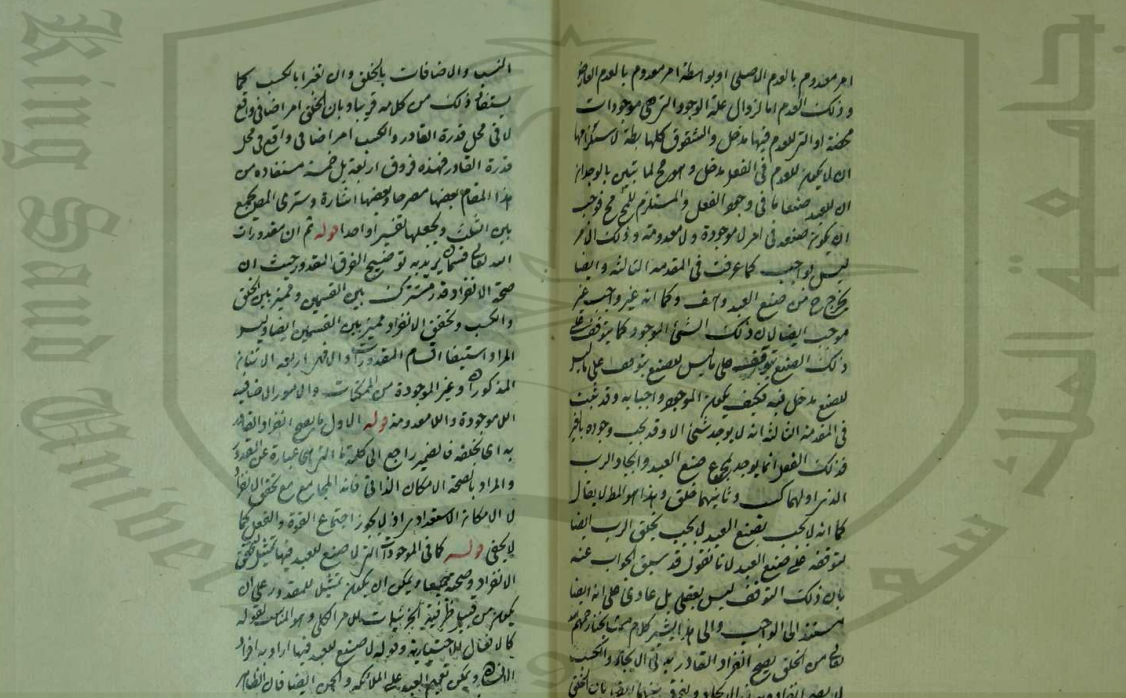 امر معدوم بالعدم الاصلى او بواسطة امر معدوم بالعدم
و ذلك العدم اما لزوال علة الوجود التى هى موجودات
محضة او التى للعدم فيها مدخل والشقوق كلها باطلة لاستلزامها
ان لا يكون للعدم فى الفعل مدخل وهو مح لما تبين بالوجدان
ان للعبد صنعا ما فى وجود الفعل والمستلزم للمح مح فوجب
ان يكون صنعه فى امر لا موجودة ولا معدومة و ذلك الامر
ليس بواجب كما عرفت فى المقدمة الثالثة وايضا
يخرج ح من صنع العبد وكما انه غير واجب غير
موجب ايضا لان ذلك الشئ الموجود كما يتوقف على
ذلك الصنع يتوقف على ما ليس للصنع يتوقف على ما ليس
للصنع مدخل فيه فكيف يكون الموجود واجبا به وقد ثبت
فى المقدمة الثانية انه لا يوجد شئ الا وقد يجب وجوده بالغير
فذلك الفعل انما يوجد بمجموع صنع العبد وايجاد الرب
الذى اولهما كسب وثانيهما خلق وهذا هو المطلـ لا يقال
كما انه لا يجب بصنع العبد لا يجب بخلق الرب ايضا
لتوقفه على صنع العبد لانا نقول قد سبق الجواب عنه
بان ذلك التوقف ليس بعقلى بل عادى على انه ايضا
مستند الى الواجب والى هذا يشير كلام مشايخنا رحمهم الله
تعالى من الخلق يصح انفراد القادر به فى الايجاد والكسب
النسب والاضافات بالخلق وان تغيرا بالكسب كما
يستفاد ذلك من كلامه قريبا وبان الخلق امر اضافى واقع
لا فى محل قدرة القادر والكسب امر اضافى واقع فى محل
قدرة القادر فهذه فروق اربعة بل خمسة مستفادة من
هذا المقام بعضها مصرحا وبعضها اشارة وسترى المص يجمع
بين الثلث ويجعلها تفسيرا واحدا قوله ثم ان مقدورات
الله تعالى قسمان يريد به توضيح الفرق المقدور حيث ان
صحة الانفراد قدر مشترك بين القسمين ومميز بين الخلق
والكسب وتحقق الانفراد مميز بين القسمين ايضا وليس
المراد استيفا اقسام المقدورات والا فهى اربعة الاثنان
المذكوران وغير الموجودة من الممكنات والامور الاضافية
اللاموجودة واللامعدومة قوله الاول ما يصح انفراد القادر
به اى بخلقه فالضمير راجع الى كلمة ما التى هى عبارة عن المقدور
والمراد بالصحة الامكان الذاتى فانه المجامع مع تحقق الانفراد
لا الامكان الاستعدادى اذ لا يجوز اجتماع القوة والفعل كما
لا يخفى قوله كما فى الموجودات التى لا صنع للعبد فيها تمثيل لتحقق
الانفراد وصحته جميعا ويمكن ان يكون تمثيل للمقدور على ان
يكون من قبيل ظرفية الجزئيات للامر الكلى وهو المناسب لقوله
كالافعال الاختيارية وقوله لا صنع للعبد فيها اراد به افراد
الانسان ويمكن تعميم العبد على الملائكة والجن ايضا فان الظاهر